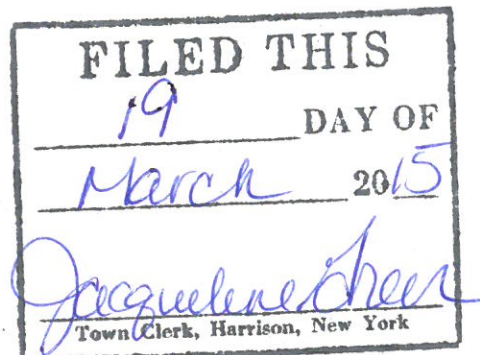 FILED THIS
19 DAY OF
March 2015
Jacqueline Greer
Town Clerk, Harrison, New York